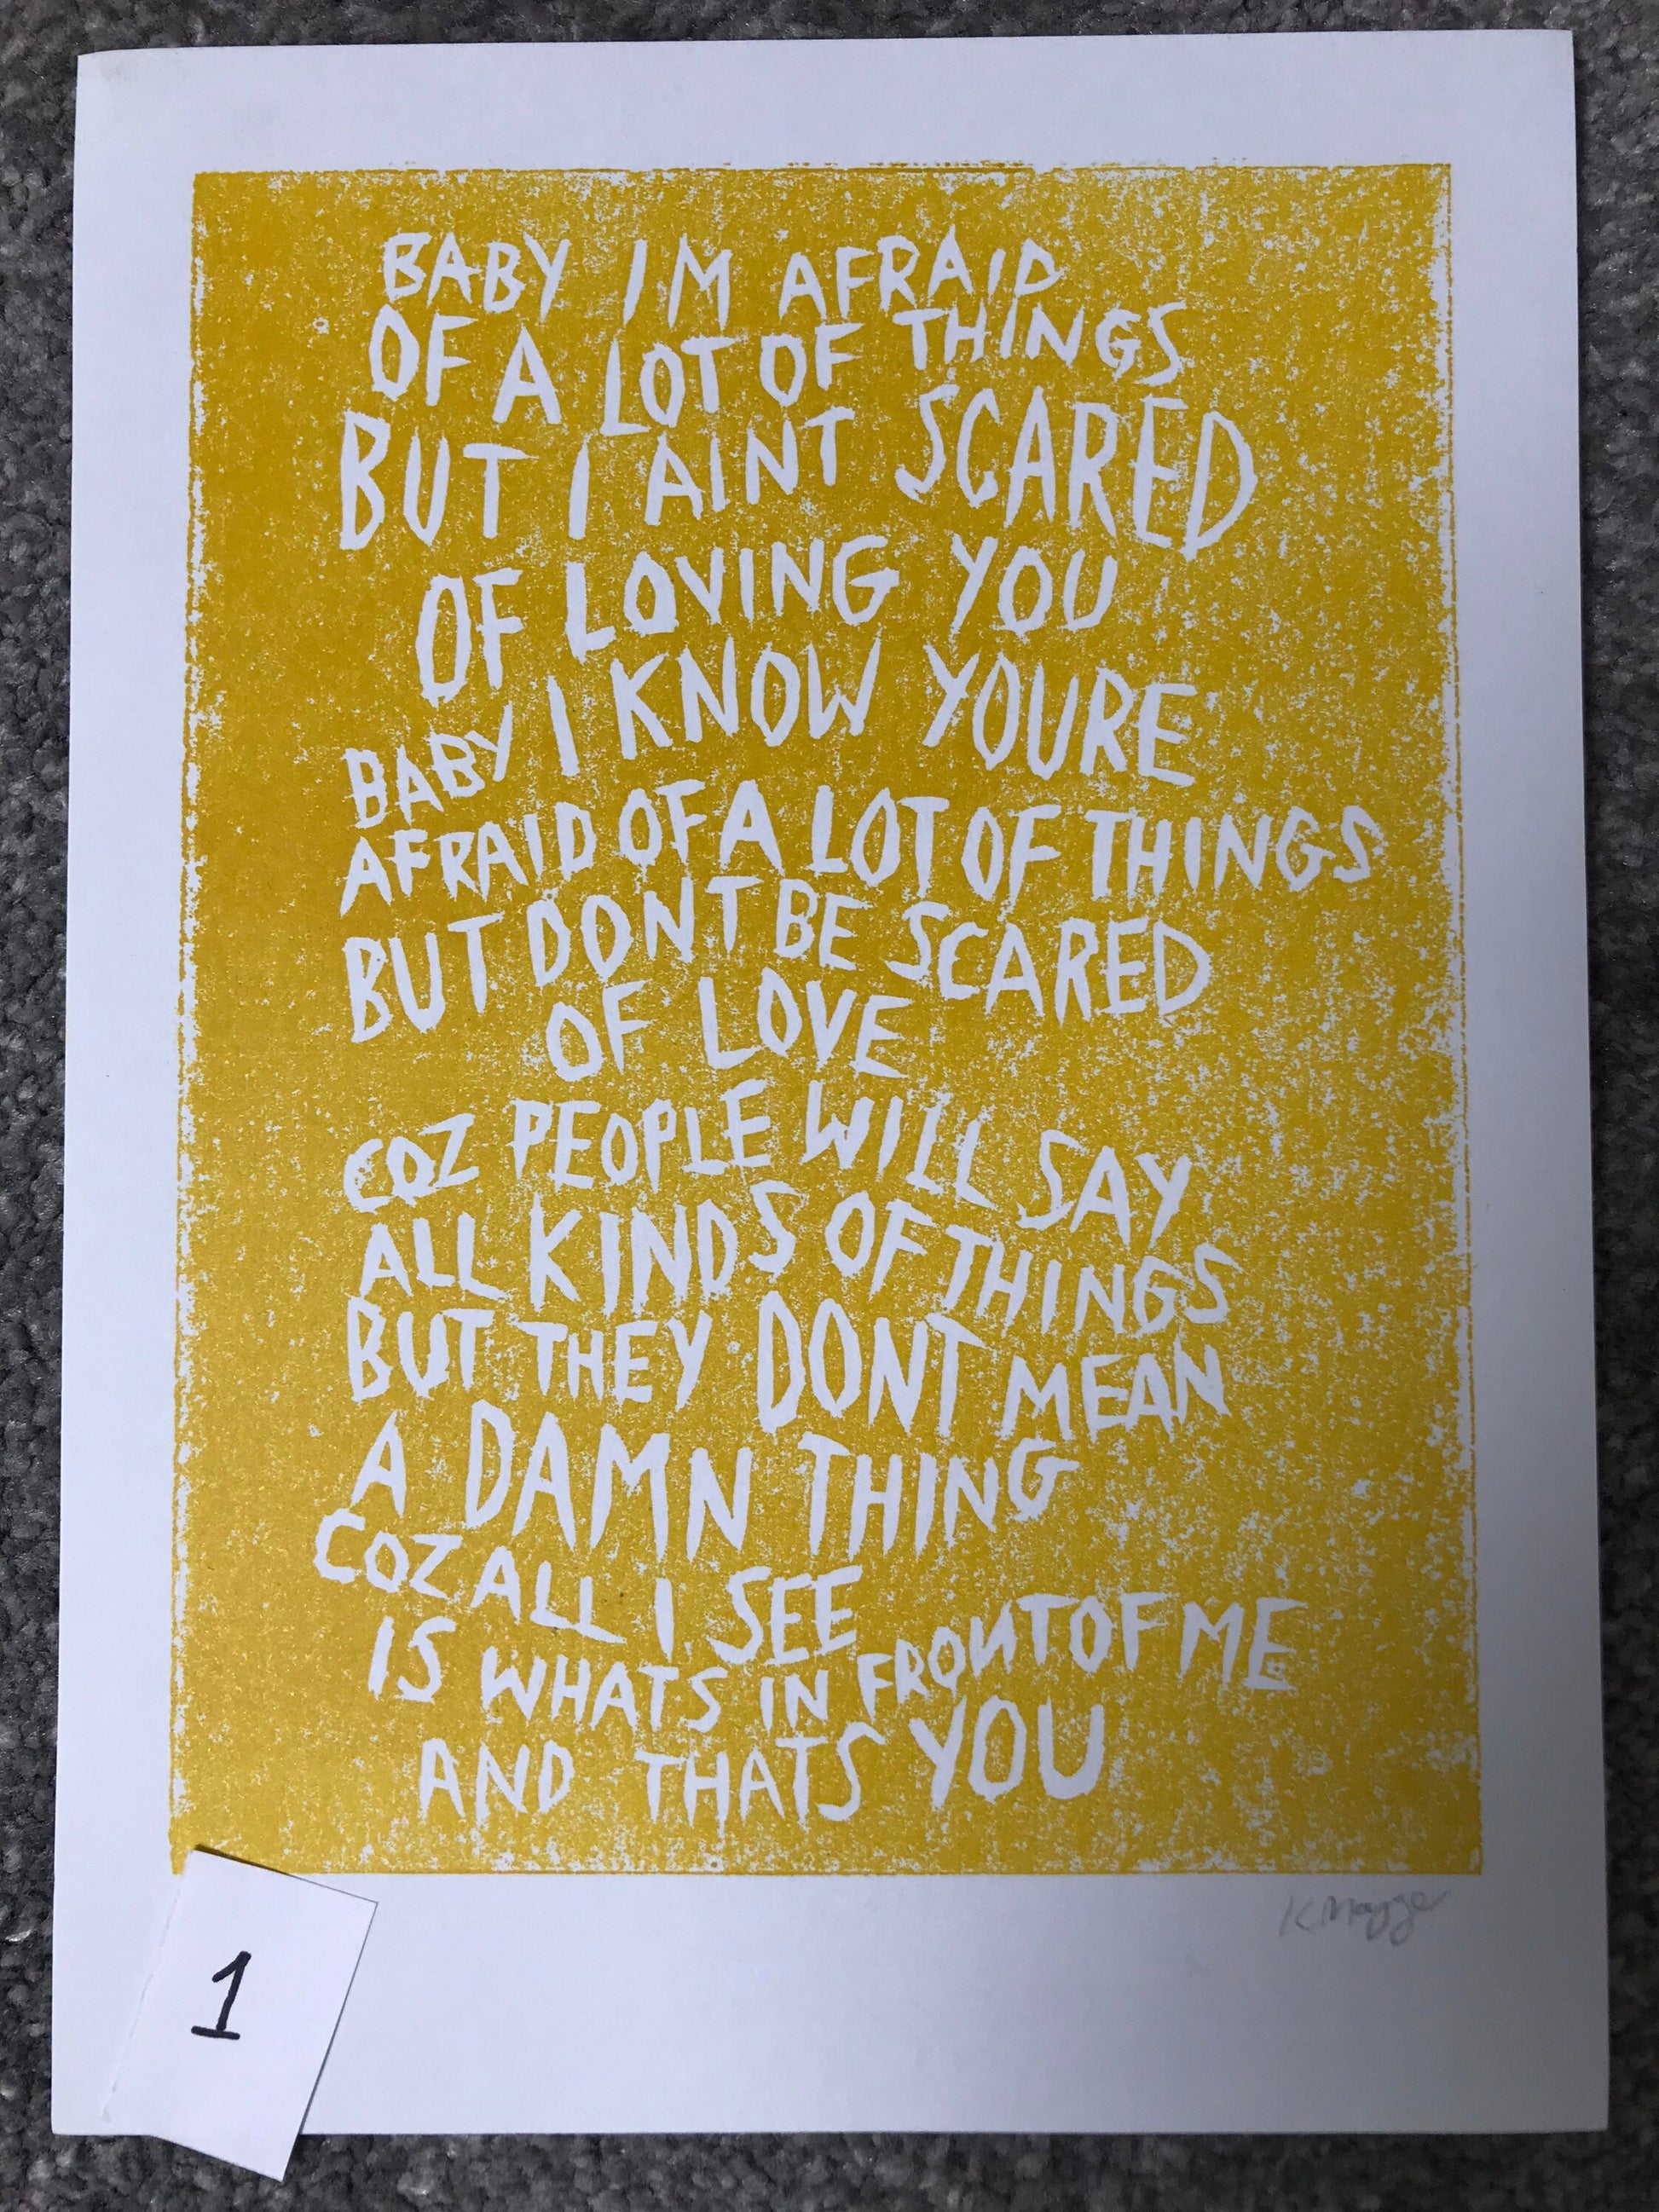 BABY IM AFRAID
OF A LOT OF THINGS
BUT I AINT SCARED
OF LOVING YOU
BABY I KNOW YOURE
AFRAID OF A LOT OF THINGS
BUT DONT BE SCARED
OF LOVE
COZ PEOPLE WILL SAY
ALL KINDS OF THINGS
BUT THEY DONT MEAN
A DAMN THING
COZ ALL I SEE
IS WHATS IN FRONT OF ME
AND THATS YOU
1